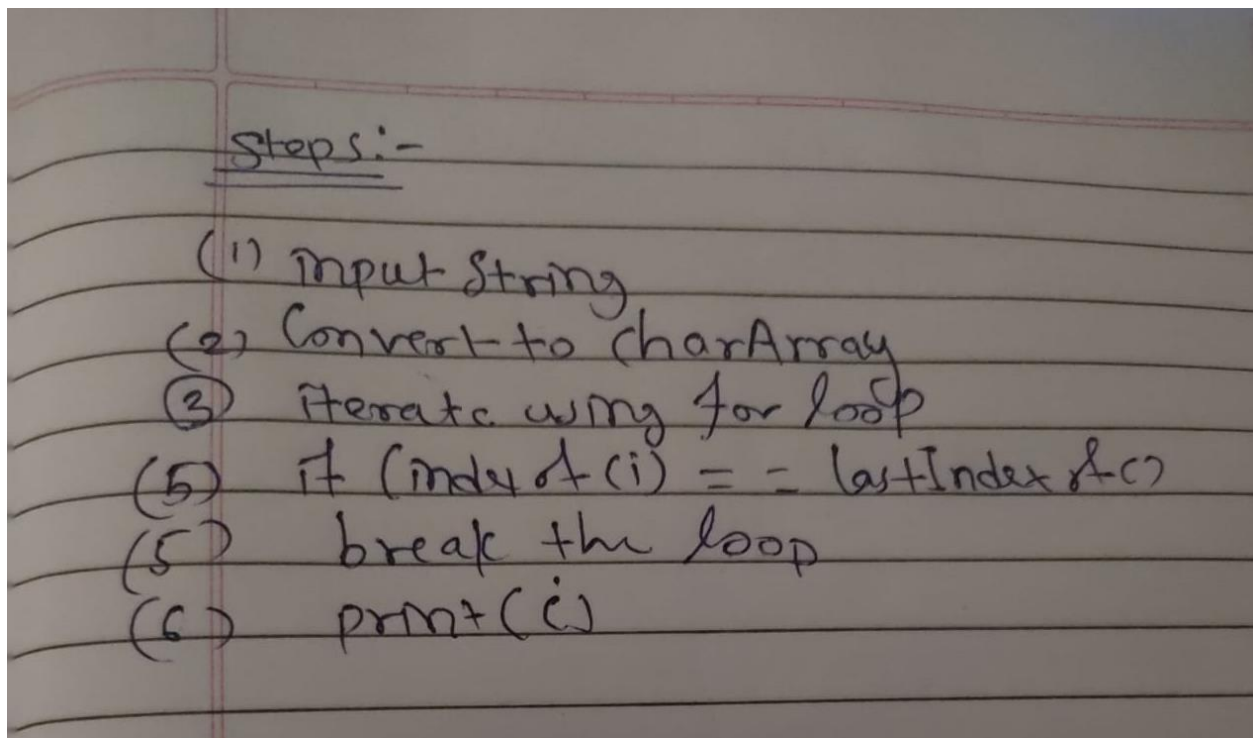 Steps:-
(1) input String
(2) Convert to charArray
(3) iterate using for loop
(5) if (indexOf(i) == lastIndexOf()
(5) break the loop
(6) print(i)